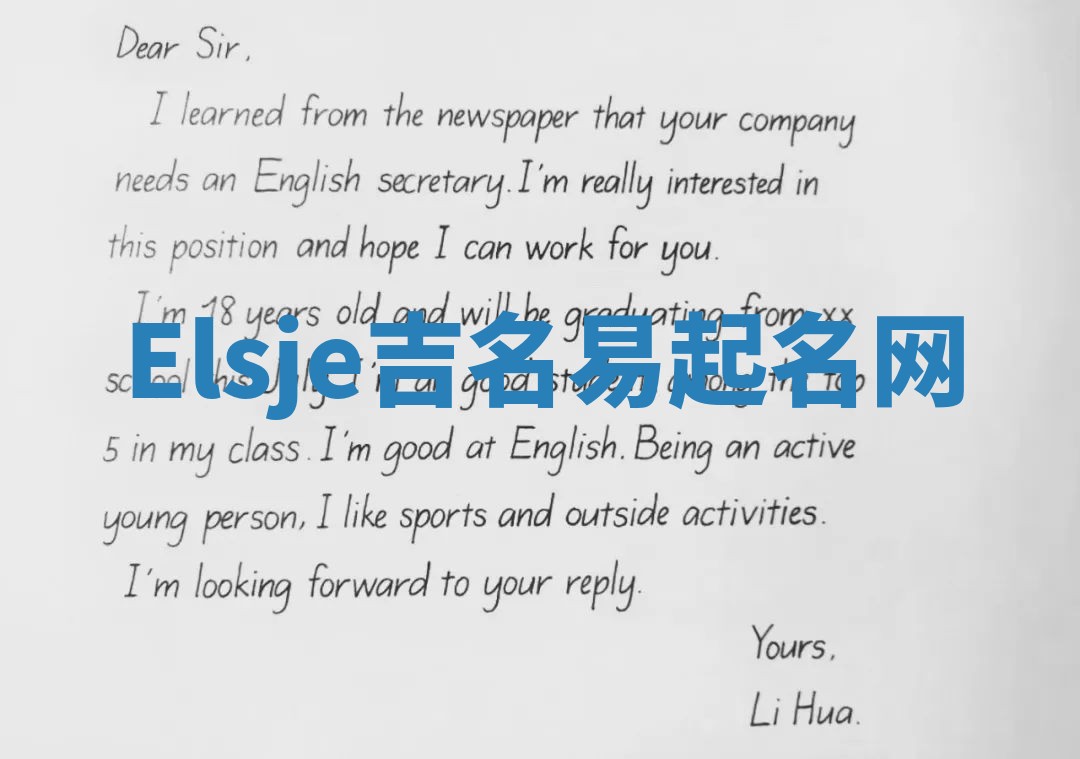 Dear Sir,
I learned from the newspaper that your company
needs an English secretary. I'm really interested in
this position and hope I can work for you.
I'm 18 years old and will be graduating from xx
Elsje吉名易起名网
school this July. I'm an good student among the top
5 in my class. I'm good at English. Being an active
young person, I like sports and outside activities.
I'm looking forward to your reply.
Yours,
Li Hua.